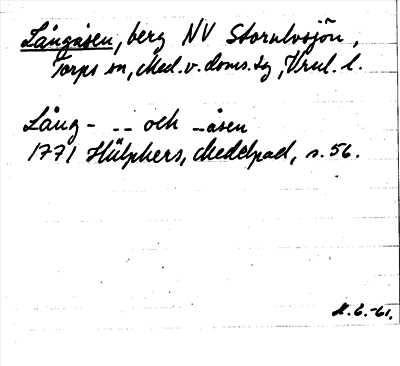 Långåsen, berg NV Storulvsjön,
Torps sn, Med. v. doms. sg, Vrnl. l.
Lång- -- och -åsen
1771 Hülphers, Medelpad, s. 56.
M. 6. -61.